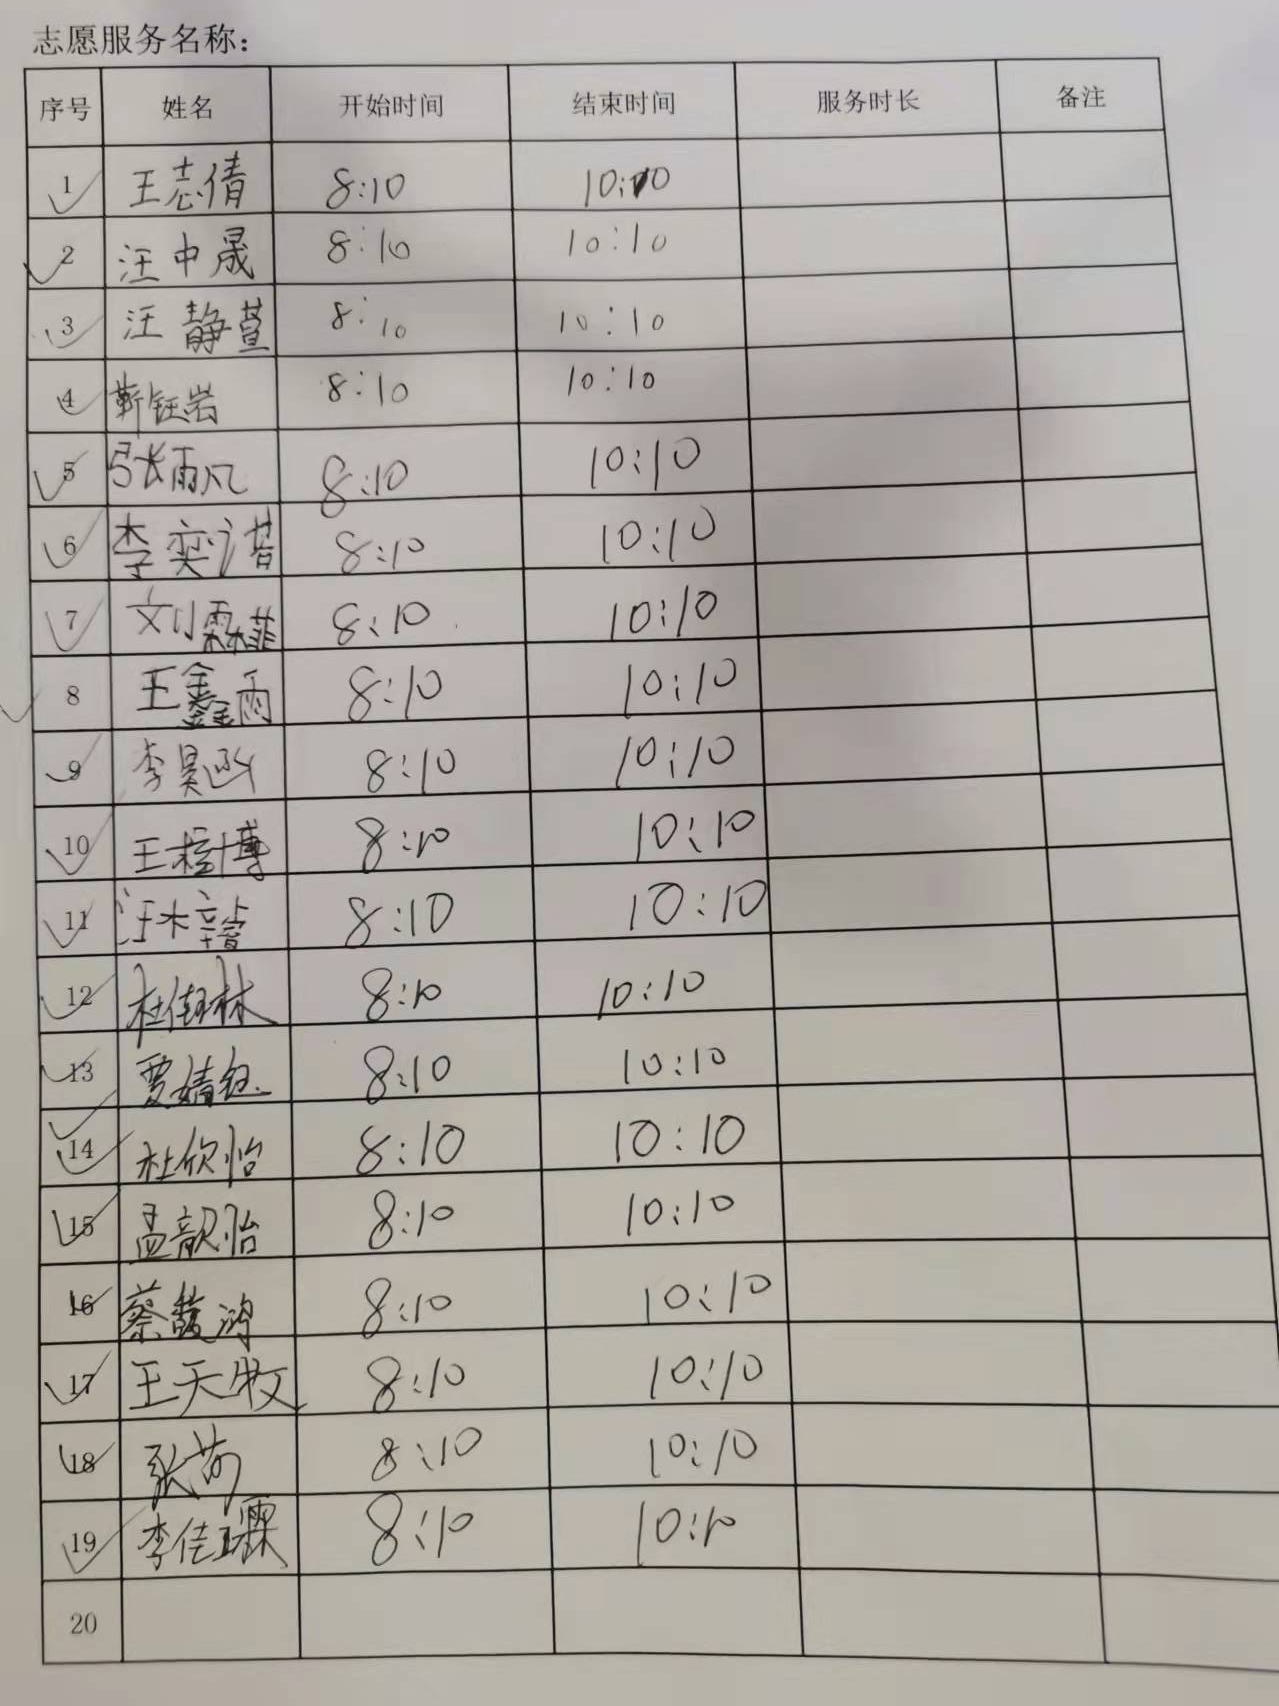 志愿服务名称：
序号 姓名 开始时间 结束时间 服务时长 备注
1 王志倩 8:10 10:10
2 汪中晟 8:10 10:10
3 汪静萱 8:10 10:10
4 靳钰岩 8:10 10:10
5 张雨凡 8:10 10:10
6 李奕诺 8:10 10:10
7 刘霖菲 8:10 10:10
8 王鑫雨 8:10 10:10
9 李昊函 8:10 10:10
10 王 博 8:10 10:10
11 汪梓 8:10 10:10
12 杜 林 8:10 10:10
13 贾婧钰 8:10 10:10
14 杜欣怡 8:10 10:10
15 孟歆怡 8:10 10:10
16 蔡馥鸿 8:10 10:10
17 王天牧 8:10 10:10
18 张 8:10 10:10
19 李佳 8:10 10:10
20